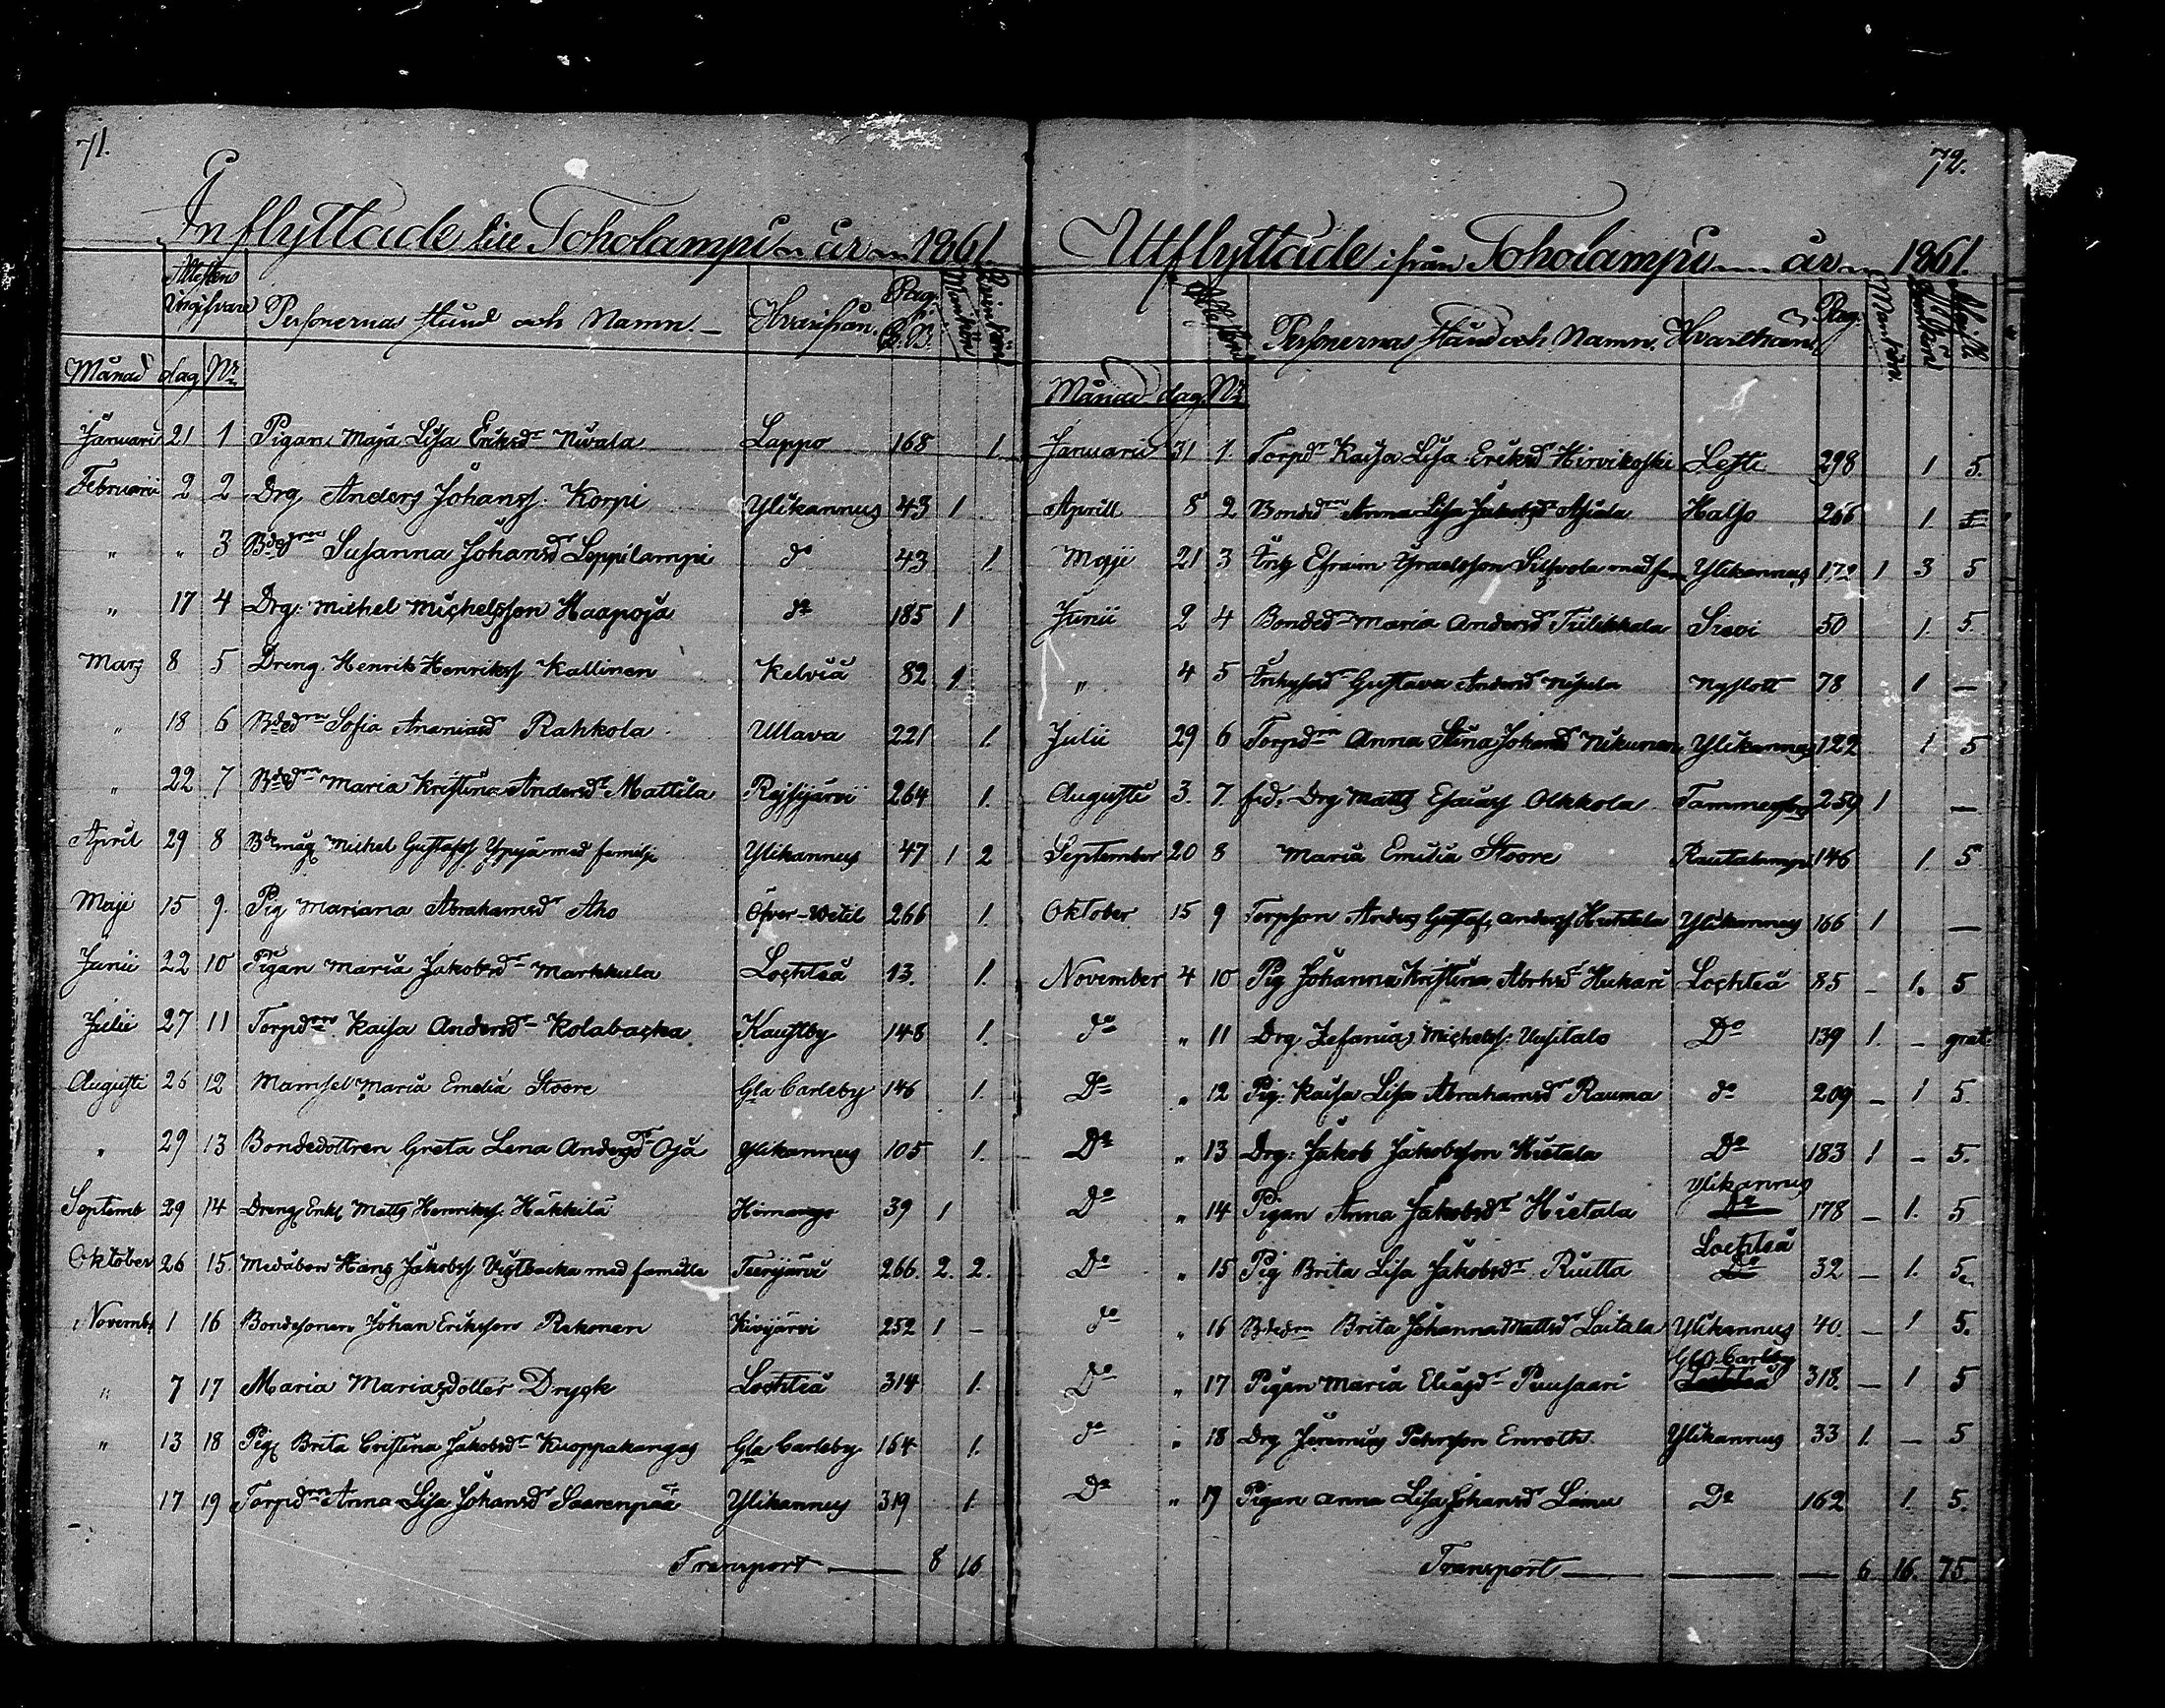 71.
Inflyttade till Toholampi år 1861.
Attestens Ingifvare
Personernas Stånd och Namn.
Hvarifrån.
Pag. C.B.
Mankön
Qvinkön
Månad dag Nr
Januari 21 1 Pigan Maja Lisa Eriksdr Nivala Lappo 168 1.
Februarii 2 2 Drg Anders Johanss. Korpi Ylikannus 43 1
" " 3 Bdedrn Susanna Johansdr Leppilampi do 43 1.
" 17 4 Drg: Michel Michelsson Haapoja do 185 1
Mars 8 5 Dreng Henrik Henrikss Kallinen Kelviå 82 1
" 18 6 Bdedrn Sofia Ananiasd Rahkola Ullava 221 1.
" 22 7 Bdedrn Maria Kristina Andersdr Mattila Rejsjärvi 264 1.
April 29 8 Bdemåg Michel Gustafss Yppyä med familje Ylikannus 47 1 2
Maji 15 9. Pig Mariana Abrahamsdr Aho Öfver-Wetil 266 1.
Junii 22 10 Pigan Maria Jakobsdr Markkula Lochteå 13. 1.
Julii 27 11 Torpdrn Kaisa Andersdr Kolabacka Kaustby 148 1.
Augusti 26 12 Mamsel Maria Emelia Stoore Gla Carleby 146 1.
" 29 13 Bondedottren Greta Lena Andersdr Oja Ylikannus 105 1.
Septemb 29 14 Dreng Enkl Matts Henrikss. Häkkilä Himango 39 1
Oktober 26 15. Hans Jakobss Vistbacka med familie Teerijärvi 266. 2. 2.
Novemb 1 16 Bondesonen Johan Eriksson Rekonen Kivijärvi 252 1 -
" 7 17 Maria Mariasdotter Dryck Lochteå 314 1.
" 13 18 Pig Brita Cristina Jakobsdr Kuoppakangas Gla Carleby. 164 1.
17 19 Torpdrn Anna Lisa Johansdr Saarenpää Ylikannus 319 1.
Transport 8 16
72.
Utflyttade ifrån Toholampi år 1861.
Attesten
Personernas Stånd och Namn.
Hvarthän
Pag.
Mankön.
Qvinkön
Månad dag. Nr
Januarii 31 1. Torpdr Kaisa Lisa Eriksd Hirvikoski Lesti 298 1 5.
Aprill 8 2 Bondedrn Anna Lisa Jakobsdr Halso 266 1.
Maji 21 3 Efraim Israelsson med fam Ylikannus 172 1 3 5
Junii 2 4 Bondedr Maria Andersdr Tulikkala Sievi 50 1. 5.
" 4 5 Gustava Andersd Nyslott 78 1 —
Julii 29 6 Torpdrn Anna Stina Johansd Nikunen Ylikannus 122 1 5
Augusti 3. 7. Drg Matts Esaiass Olkkola Tammerfors 259 1 —
September 20 8 Maria Emilia Stoore Rautalampi 146 1. 5
Oktober 15 9 Torpson Anders Gustaf Anderss Ylikannus 166 1 —
November 4 10 Pig Johanna Kristina Abrhsd Hukari Lochteå 85 - 1. 5
do " 11 Drg Zefanias Michelss. Uusitalo Do 139 1. - grat.
Do " 12 Pig: Kaisa Lisa Abrahamsd Rauma do 209 - 1 5.
Do " 13 Drg: Jakob Jakobsson Hietala Do 183 1 - 5.
Do " 14 Pigan Anna Jakobsdr Hietala Ylikannus 178 - 1. 5
Do " 15 Pig Brita Lisa Jakobsdr Riutta Lochteå 32 - 1. 5.
do " 16 Bdedrn Brita Johanna Mattsd Laitala Ylikannus 40. - 1 5.
Do " 17 Pigan Maria Eliasdr Puusaari Gla Carleby 318. - 1 5
do " 18 Drg Jeremias Petersson Enroth Ylikannus 33 1. - 5
Do " 19 Pigan Anna Lisa Johansd Do 162 1. 5.
Transport 6 16. 75.